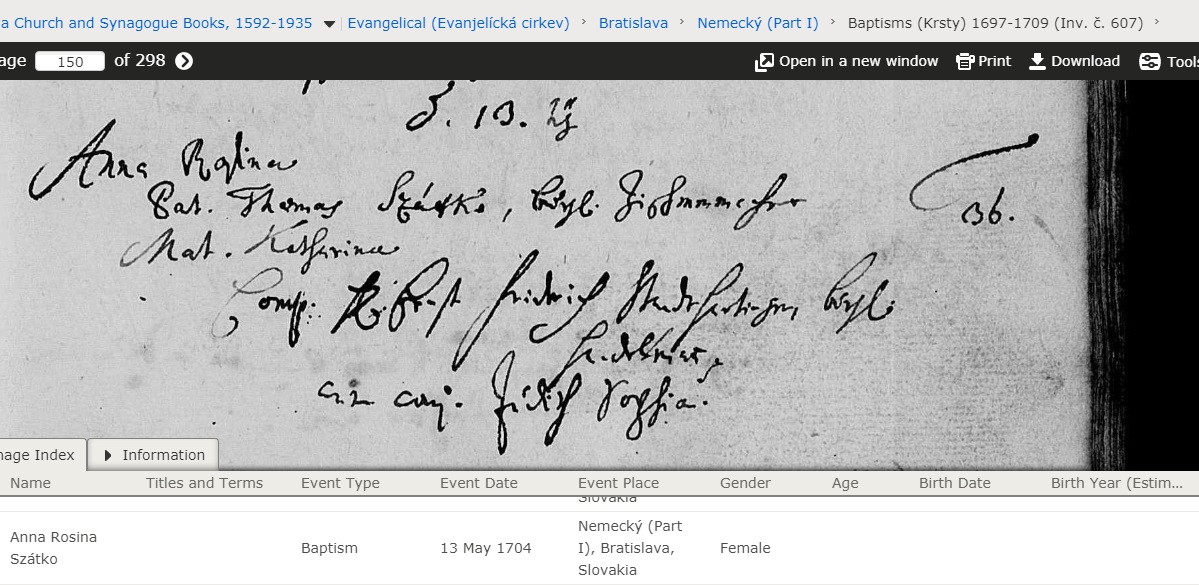 a Church and Synagogue Books, 1592-1935 Evangelical (Evanjelícká cirkev) › Bratislava › Nemecký (Part I) › Baptisms (Krsty) 1697-1709 (Inv. č. 607) ›
age 150 of 298 Open in a new window Print Download Tools
13.
Anna Rosina
Pat. Thomas Szátkó,
36.
Mat. Katharina
Comp. Friedrich
cum conj. Judith Sophia.
mage Index Information
Name Titles and Terms Event Type Event Date Event Place Gender Age Birth Date Birth Year (Estim...
Slovakia
Anna Rosina
Szátko
Baptism 13 May 1704
Nemecký (Part
I), Bratislava,
Slovakia
Female